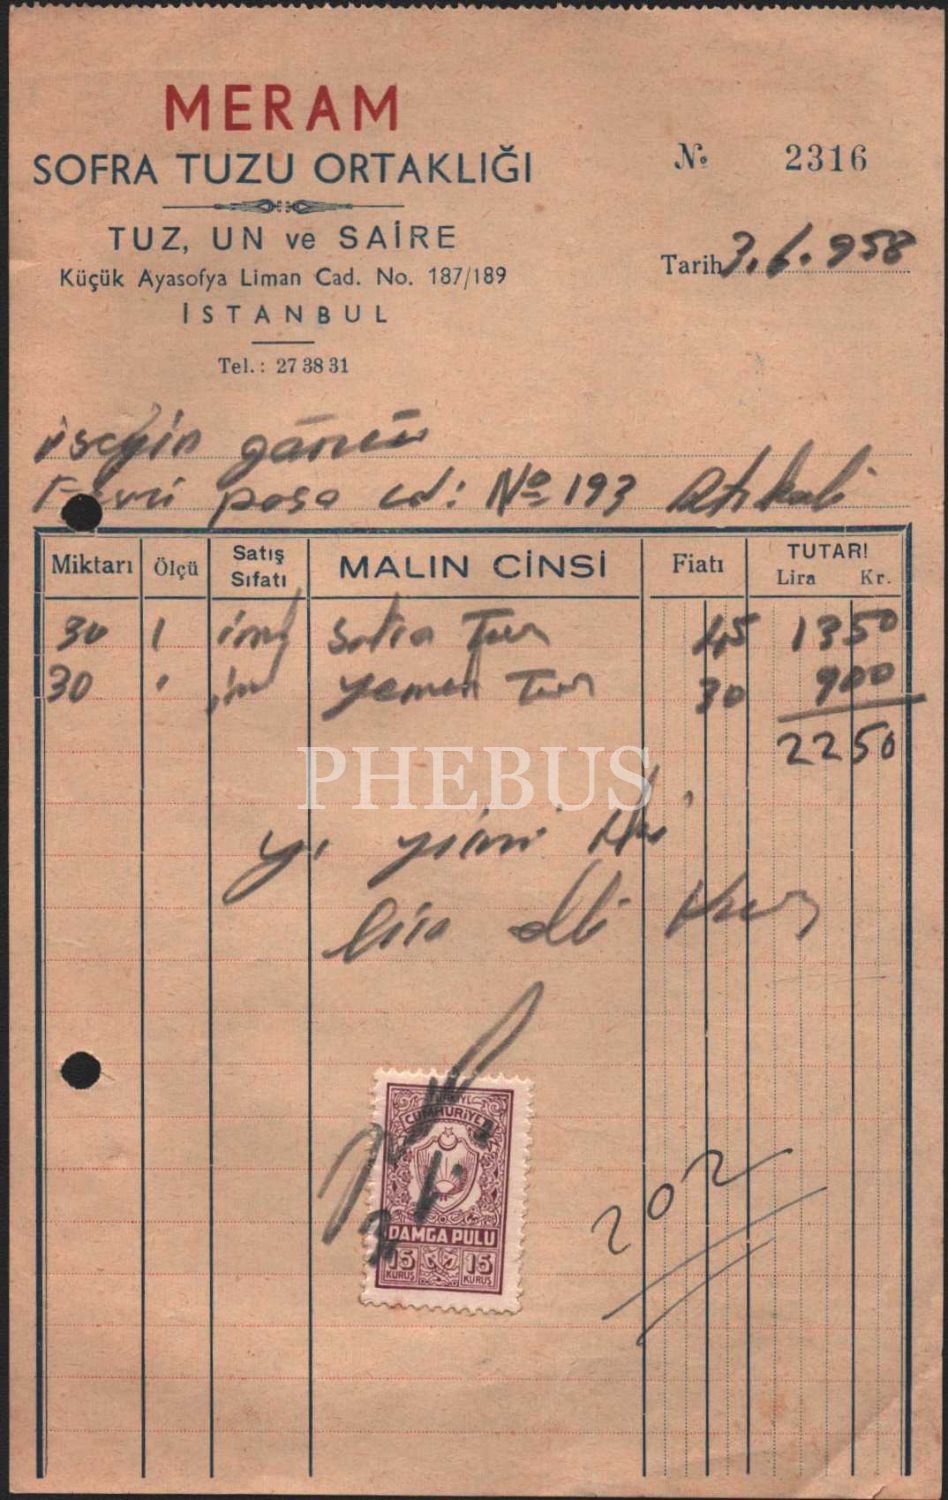 MERAM
SOFRA TUZU ORTAKLIĞI
TUZ, UN ve SAİRE
Küçük Ayasofya Liman Cad. No. 187/189
İSTANBUL
Tel.: 27 38 31
No 2316
Tarih 3.6.958
üseyin
paşa cd: No 193 Atikali
Miktarı Ölçü Satış Sıfatı MALIN CİNSİ Fiatı TUTARI Lira Kr.
30 1 sofra Tuz 45 13 50
30 " yemek Tuz 30 9 00
22 50
PHEBUS
yirmi iki
lira elli Kuruş
TÜRKİYE
CUMHURİYETİ
DAMGA PULU
15 15
KURUŞ KURUŞ
202